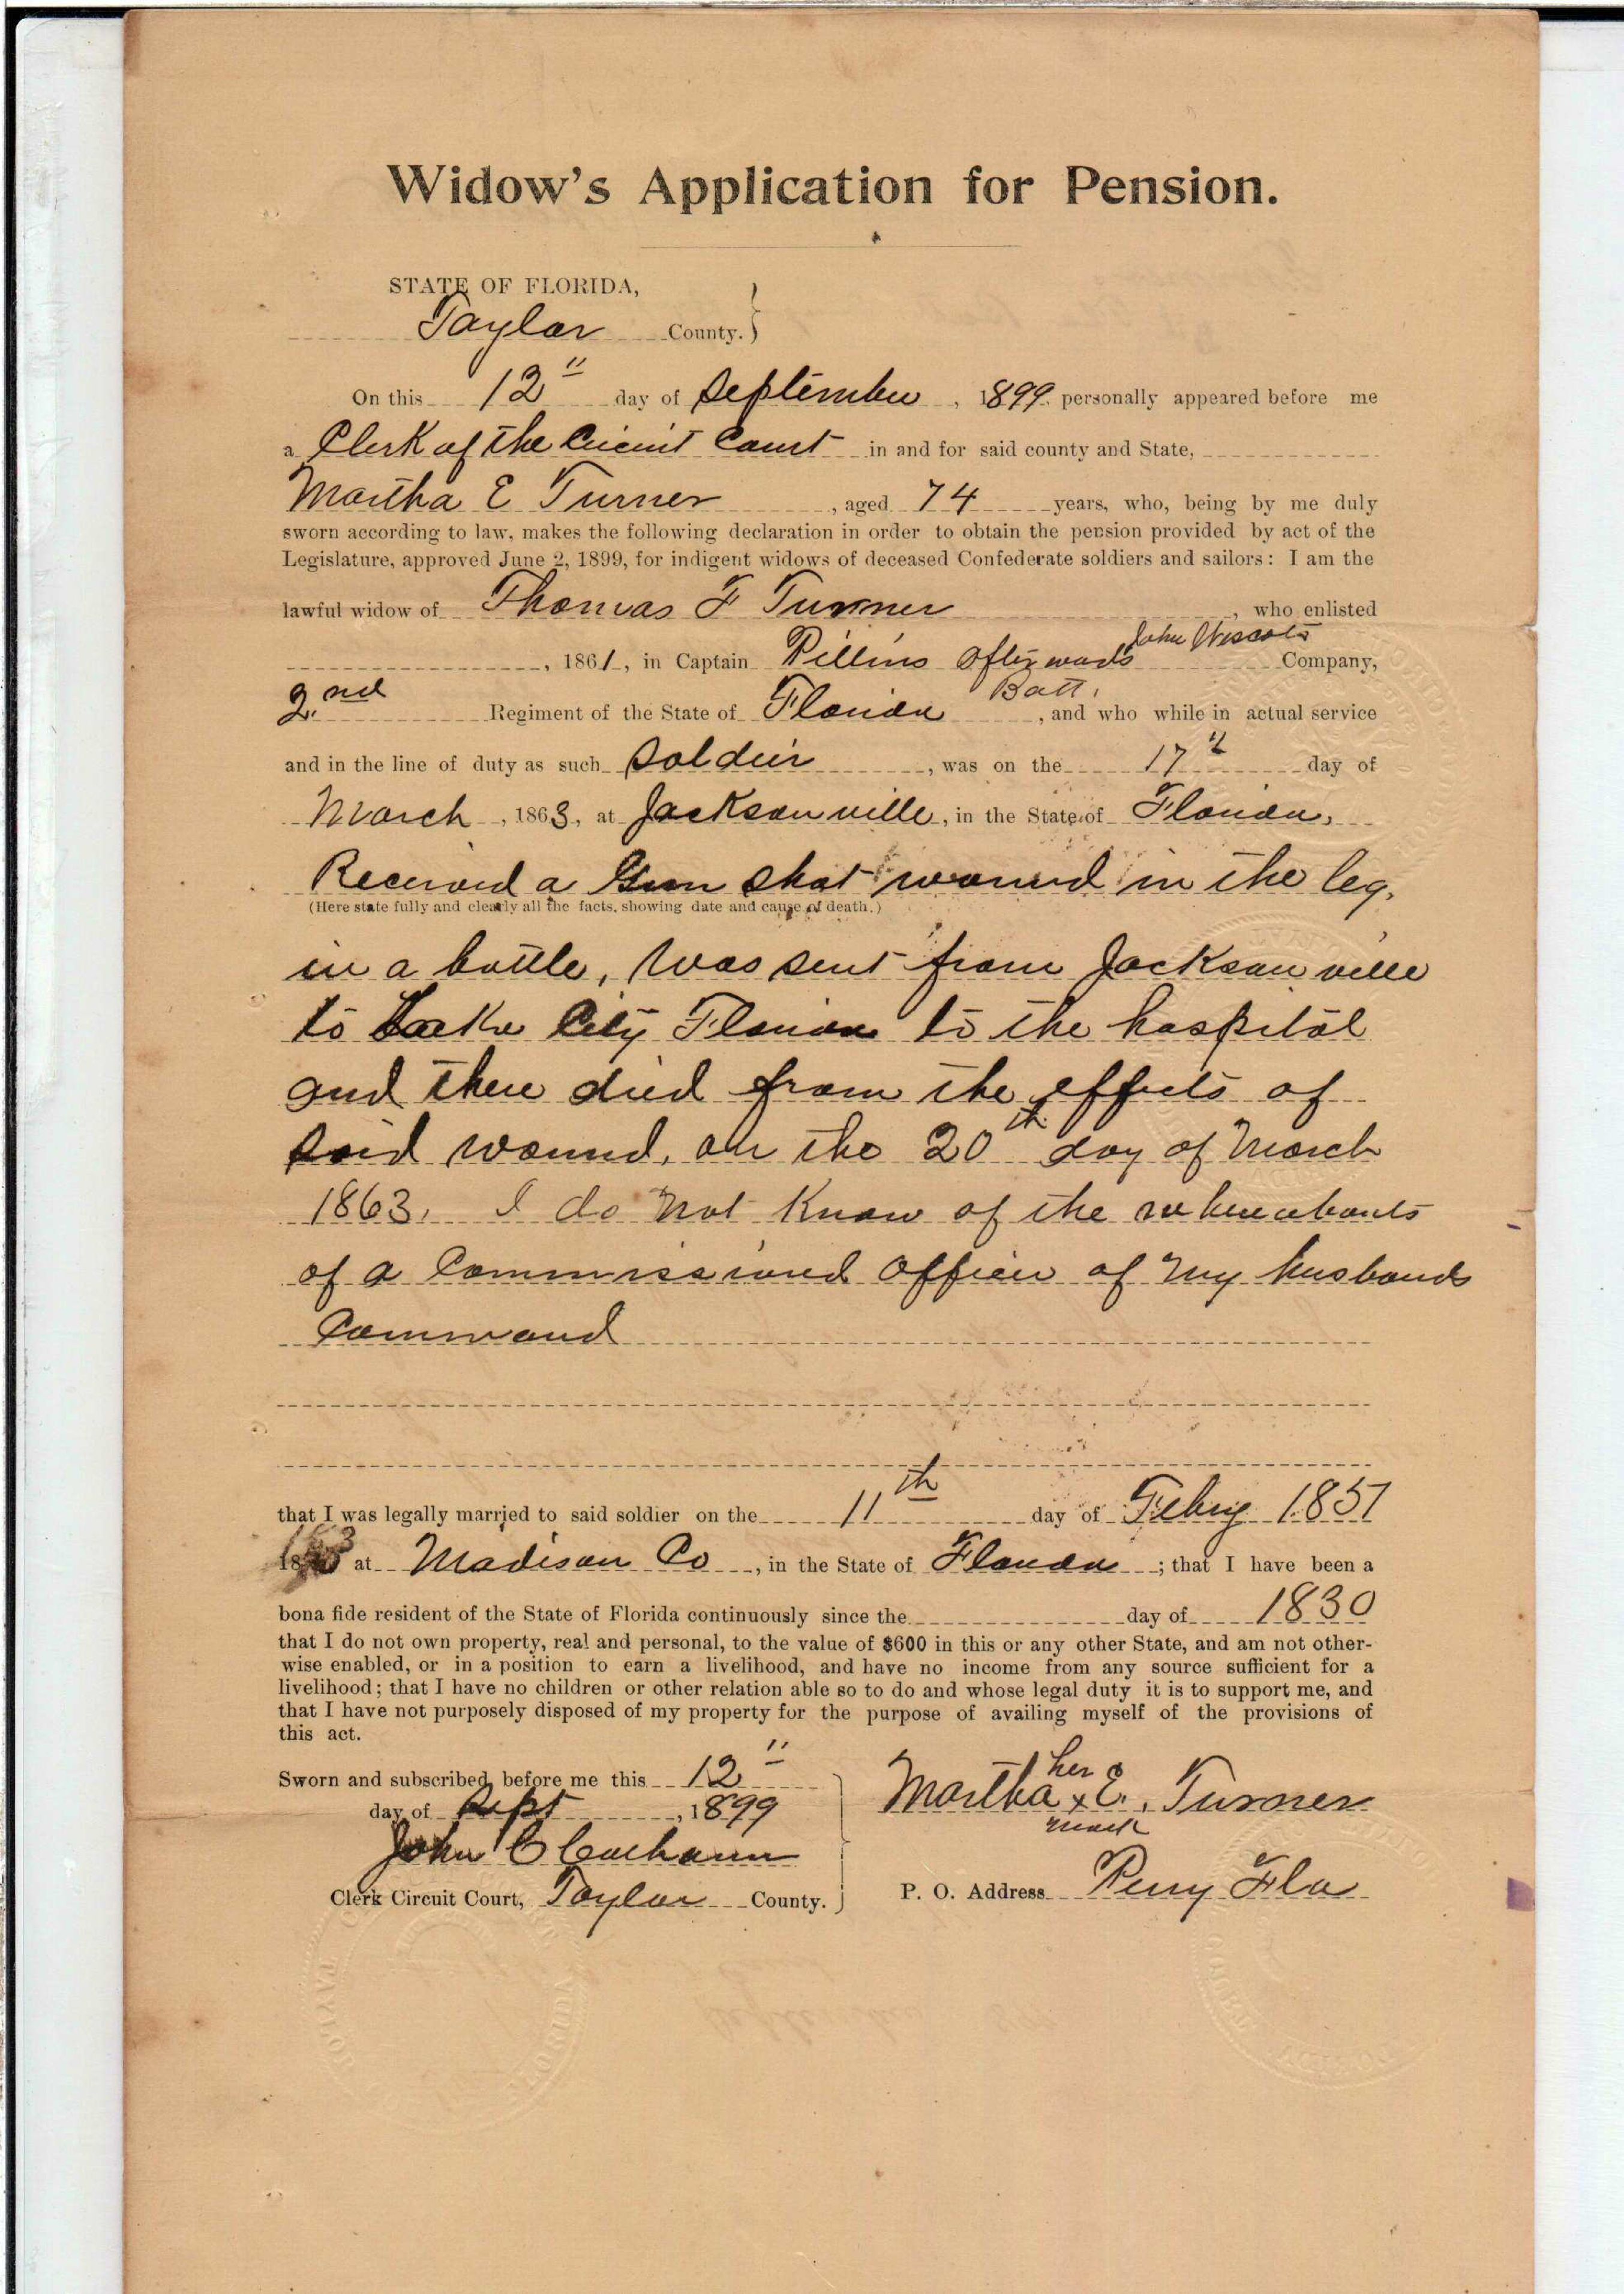 Widow's Application for Pension.
STATE OF FLORIDA,
Taylor County. }
On this 12" day of September, 1899, personally appeared before me
a Clerk of the Circuit Court in and for said county and State,
Martha E Turner, aged 74 years, who, being by me duly
sworn according to law, makes the following declaration in order to obtain the pension provided by act of the
Legislature, approved June 2, 1899, for indigent widows of deceased Confederate soldiers and sailors: I am the
lawful widow of Thomas F Turner, who enlisted
, 1861, in Captain afterwards John Company,
2nd Regiment of the State of Florida Batt., and who while in actual service
and in the line of duty as such Soldier, was on the 17" day of
March, 1863, at Jacksonville, in the State of Florida,
Received a Gun shot wound in the leg,
(Here state fully and clearly all the facts, showing date and cause of death.)
in a battle, was sent from Jacksonville
to Lake City Florida to the hospital
and there died from the effects of
said wound, on the 20th day of March
1863. I do not know of the whereabouts
of a Commissioned officer of my husbands
Command
that I was legally married to said soldier on the 11th day of Febry 1857
at Madison Co, in the State of Florida; that I have been a
bona fide resident of the State of Florida continuously since the day of 1830
that I do not own property, real and personal, to the value of $600 in this or any other State, and am not other-
wise enabled, or in a position to earn a livelihood, and have no income from any source sufficient for a
livelihood; that I have no children or other relation able so to do and whose legal duty it is to support me, and
that I have not purposely disposed of my property for the purpose of availing myself of the provisions of
this act.
Sworn and subscribed before me this 12"
day of Sept, 1899
John C Calhoun
Clerk Circuit Court, Taylor County.
her
Martha x E. Turner
mark
P. O. Address Perry Fla